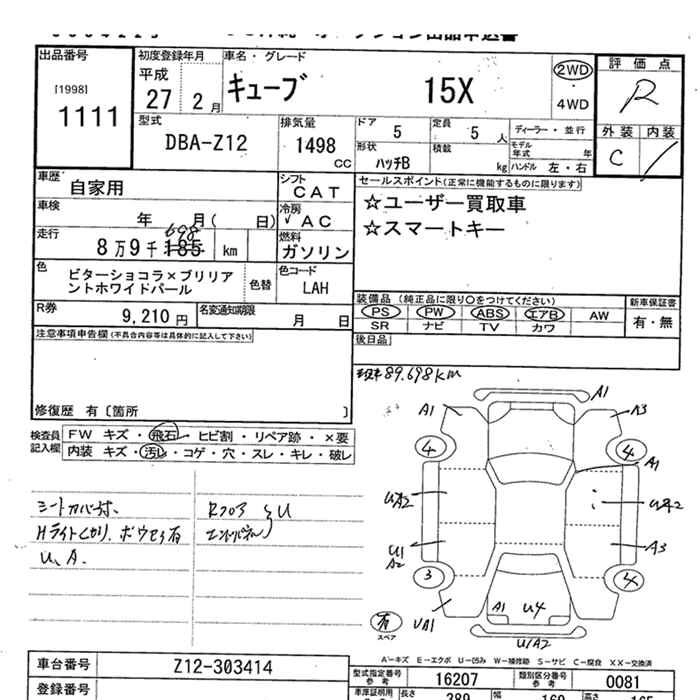 出品番号
[1998]
1111
初度登録年月
平成
27 2月
車名・グレード
キューブ 15X
2WD
・
4WD
評価点
R
外装 内装
C /
型式
DBA-Z12
排気量
1498 CC
ドア 5
定員 5 人
形状 ハッチB
積載 kg
ディーラー・並行
モデル年式 年
ハンドル 左・右
車歴 自家用
シフト CAT
車検 年 月( 日)
冷房 ✓ AC
走行 8万9千185 km
698
燃料 ガソリン
色 ビターショコラ×ブリリアントホワイトパール
色替
色コード LAH
R券 9,210円
名変通知期限 月 日
セールスポイント(正常に機能するものに限ります)
☆ユーザー買取車
☆スマートキー
装備品 (純正品に限り○をつけてください)
PS PW ABS エアB AW
SR ナビ TV カワ
新車保証書
有・無
後日品
注意事項申告欄(不具合内容等は具体的に記入して下さい)
修復歴 有〔箇所 〕
89.698km
検査員記入欄
FW キズ・飛石・ヒビ割・リペア跡・×要
内装 キズ・汚レ・コゲ・穴・スレ・キレ・破レ
シートカバー付.
Hライトくもり.
U、A.
Rフロア
エンドパネル
U
A1
A1 A3
4 4
A1
UA2 UA2
U1
A2
A3
3 4
A1 U4
UA1
U1A2
有
スペア
A-キズ E-エクボ U-凹み W-補修跡 S-サビ C-腐食 XX-交換済
車台番号 Z12-303414
型式指定番号 参考 16207
類別区分番号 参考 0081
登録番号
車庫証明用 参考
長さ 389
幅 169
高さ 165